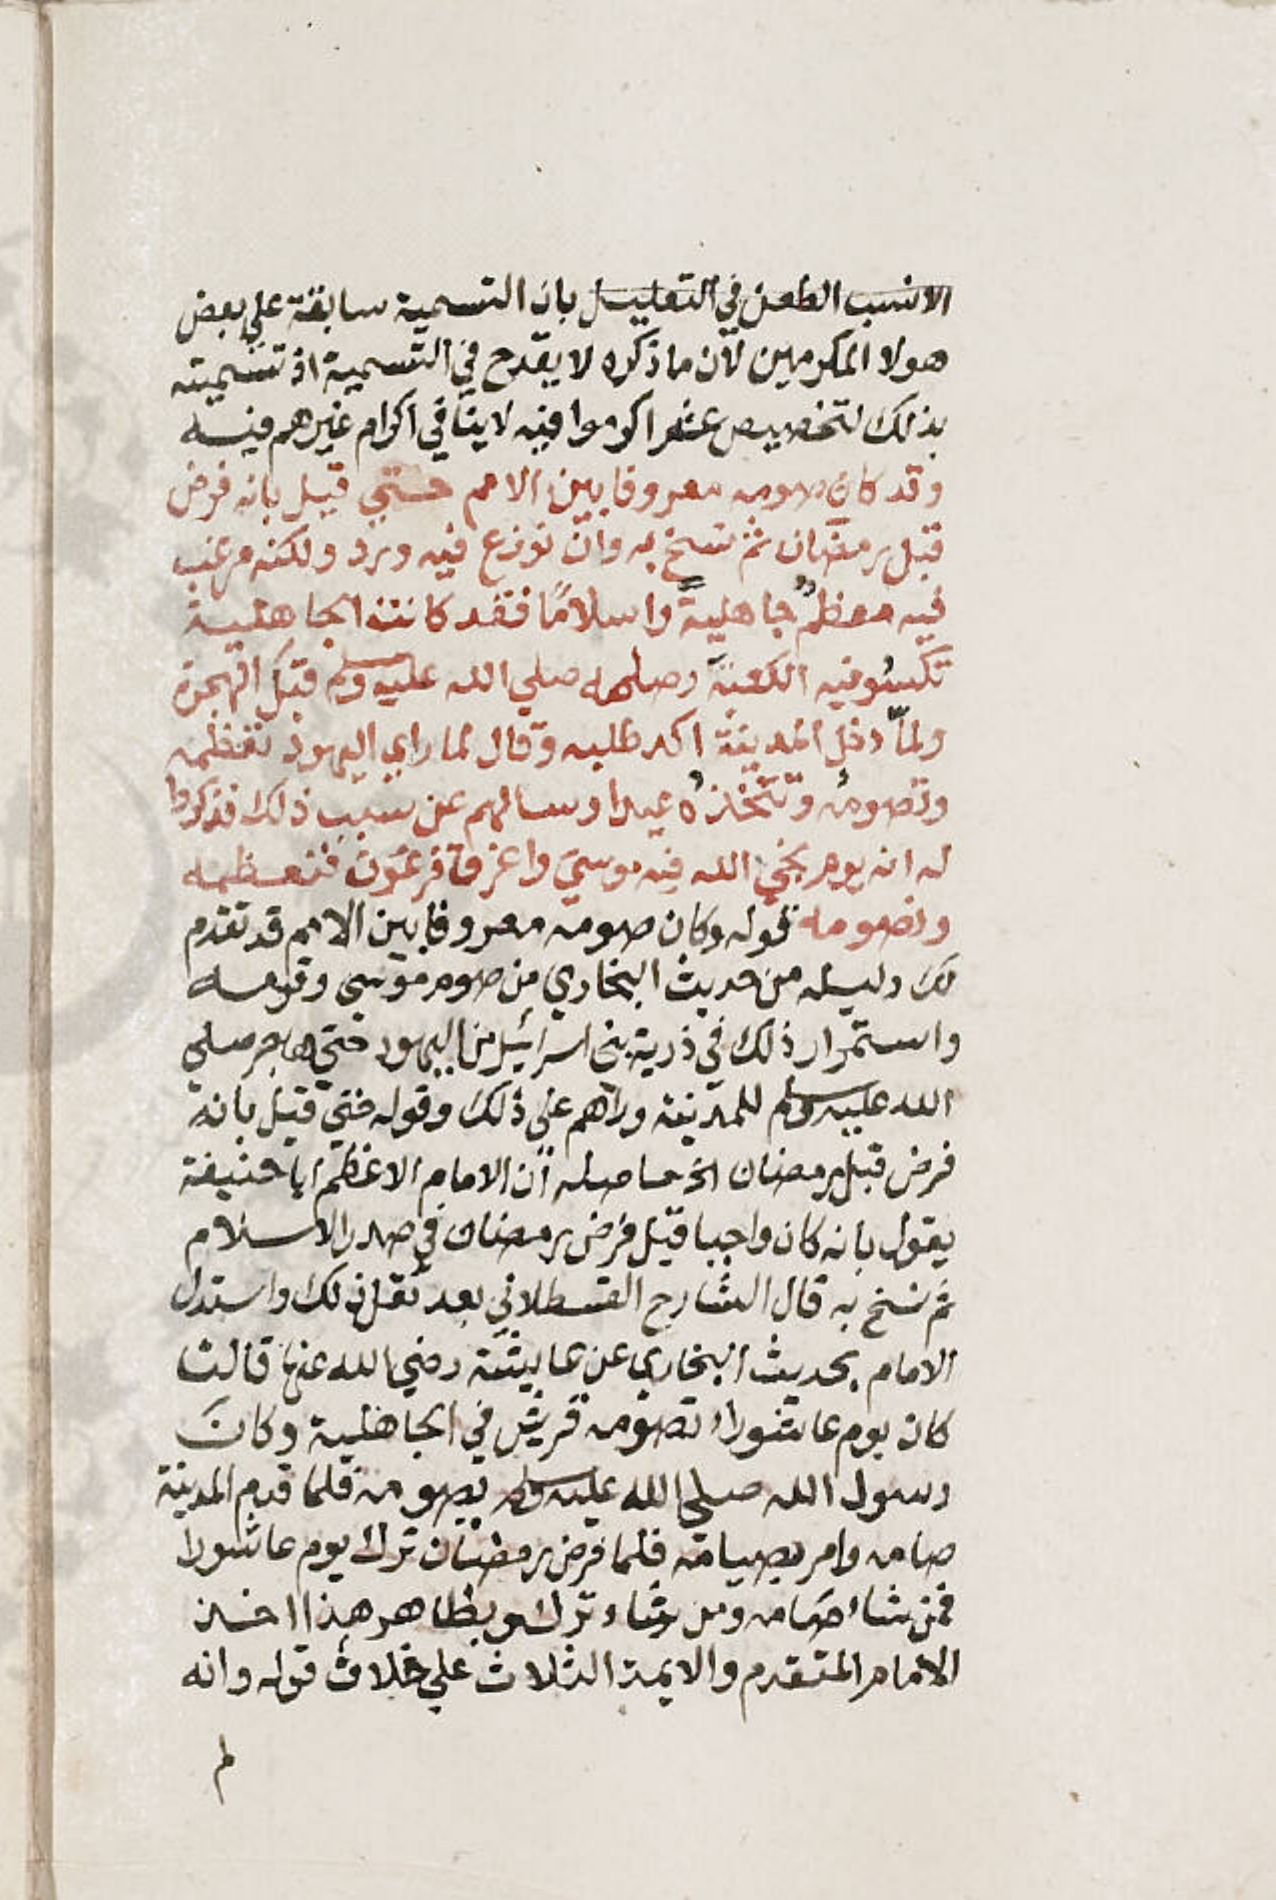 الانسب الطعن في التعليل بان التسمية سابقة علي بعض
هولا المكرمين لان ما ذكره لا يقدح في التسمية اذ تسميته
بذلك لتخصيص عشر اكرموا فيه لا ينافي اكرام غيرهم فيه
وقد كان صومه معروفا بين الامم حتي قيل بانه فرض
قبل رمضان ثم نسخ به وان نوزع فيه ورد ولكنه مرغب
فيه معظم جاهلية واسلاما فقد كانت الجاهلية
تكسو فيه الكعبة وصامه صلي الله عليه وسلم قبل الهجرة
ولما دخل المدينة اكد طلبه وقال لما راي اليهود تعظمه
وتصومه وتتخذه عيدا وسالهم عن سبب ذلك فذكروا
له انه يوم نجي الله فيه موسي واغرق فرعون فنعظمه
ونصومه قوله وكان صومه معروفا بين الامم قد تقدم
لك دليله من حديث البخاري من صوم موسي وقومه
واستمرار ذلك في ذرية بني اسرائيل من اليهود حتي هاجر صلي
الله عليه وسلم للمدينة وراهم علي ذلك وقوله حتي قيل بانه
فرض قبل رمضان الخ حاصله ان الامام الاعظم ابا حنيفة
يقول بانه كان واجبا قبل فرض رمضان في صدر الاسلام
ثم نسخ به قال الشارح القسطلاني بعد نقل ذلك واستدل
الامام بحديث البخاري عن عايشة رضي الله عنها قالت
كان يوم عاشوراء تصومه قريش في الجاهلية وكان
رسول الله صلي الله عليه وسلم يصومه فلما قدم المدينة
صامه وامر بصيامه فلما فرض رمضان ترك يوم عاشورا
فمن شاء صامه ومن شاء تركه وبظاهر هذا اخذ
الامام المتقدم والايمة الثلاث علي خلاف قوله وانه
لم